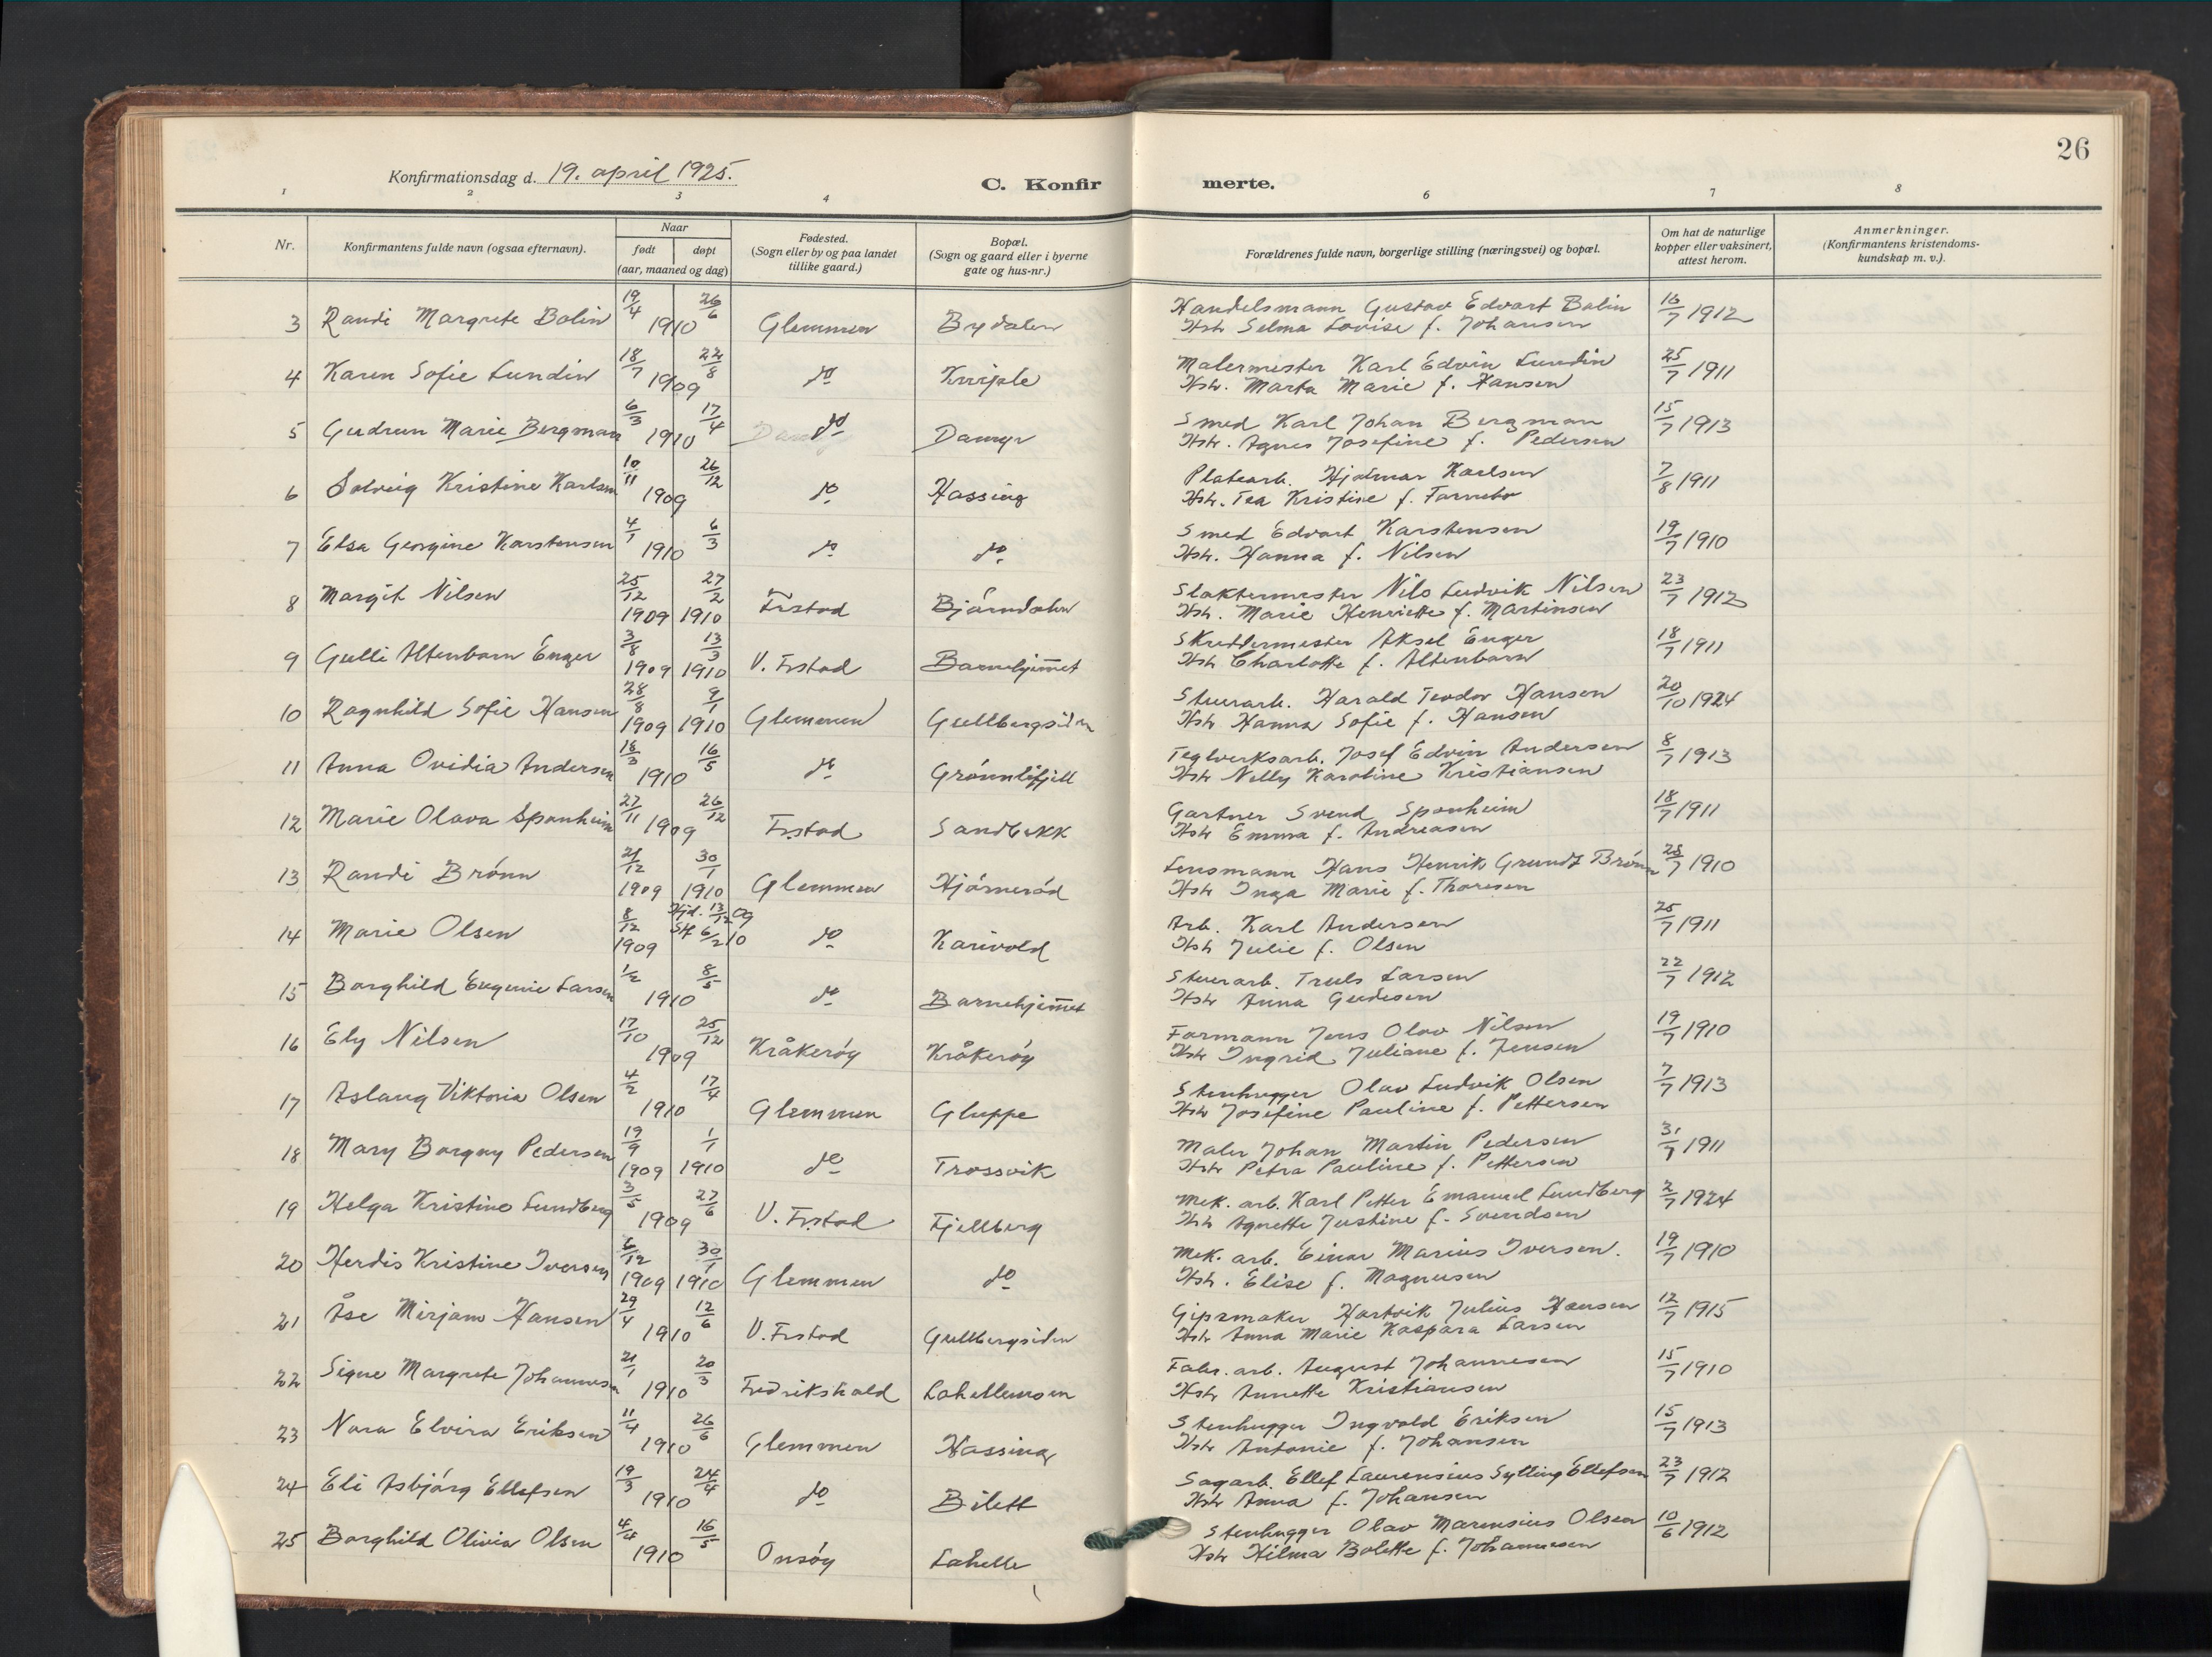 26
Konfirmationsdag d. 19. april 1925.
C. Konfirmerte.
1 2 3 4 6 7 8
Nr.
Konfirmantens fulde navn (ogsaa efternavn).
Naar
født døpt
(aar, maaned og dag)
Fødested.
(Sogn eller by og paa landet
tillike gaard.)
Bopæl.
(Sogn og gaard eller i byerne
gate og hus-nr.)
Forældrenes fulde navn, borgerlige stilling (næringsvei) og bopæl.
Om hat de naturlige
kopper eller vaksinert,
attest herom.
Anmerkninger.
(Konfirmantens kristendoms-
kundskap m. v.).
3 Randi Margrete Bolin 19/4 1910 26/6 Glemmen Bydalen Handelsmann Gustav Edvart Bolin 16/7 1912
Hstr Selma Lovise f. Johansen
4 Karen Sofie Lundin 18/7 1909 22/8 do Kniple Malermester Karl Edvin Lundin 25/7 1911
Hstr. Marta Marie f. Hansen
5 Gudrun Marie Bergman 6/3 1910 17/4 do Damyr Smed Karl Johan Bergman 15/7 1913
Hstr. Agnes Josefine f. Pedersen
6 Solveig Kristine Karlsen 10/11 1909 26/12 do Hassing Platearb. Hjalmar Karlsen 7/8 1911
Hstr. Tea Kristine f. Farnebo
7 Elsa Georgine Karstensen 4/1 1910 6/3 do do Smed Edvart Karstensen 19/7 1910
Hstr. Hanna f. Nilsen
8 Margit Nilsen 25/12 1909 27/2 1910 Frstad Bjørndalen Slaktermester Nils Ludvik Nilsen 23/7 1912
Hstr. Marie Henriette f. Martinsen
9 Gulli Altenborn Enger 3/8 1909 13/3 1910 V. Frstad Barnehjemmet Skreddermester Aksel Enger 18/7 1911
Hstr Charlotte f. Altenborn
10 Ragnhild Sofie Hansen 28/8 1909 9/1 1910 Glemmen Gullbergsiden Stuerarb. Harald Teodor Hansen 20/10 1924
Hstr Hanna Sofie f. Hansen
11 Anna Ovidia Andersen 18/3 1910 16/5 do Grønnlifjell Teglverksarb. Josef Edvin Andersen 8/7 1913
Hstr Nelly Karoline Kristiansen
12 Marie Olava Sponheim 27/11 1909 26/12 Frstad Sandbekk Gartner Svend Sponheim 18/7 1911
Hstr Emma f. Andreasen
13 Randi Brønn 21/12 1909 30/1 1910 Glemmen Hjørnerød Lensmann Hans Henrik Grundt Brønn 28/7 1910
Hstr Inga Marie f. Thoresen
14 Marie Olsen 8/12 1909 Hjd. 13/12 09 Stf 6/2 10 do Karivold Arb. Karl Andersen 25/7 1911
Hstr Julie f. Olsen
15 Borghild Eugenie Larsen 1/2 1910 8/5 do Barnehjemmet Stuerarb. Truls Larsen 22/7 1912
Hstr Anna Gudesen
16 Ely Nilsen 17/10 1909 25/12 Kråkerøy Kråkerøy Formann Jens Olav Nilsen 19/7 1910
Hstr Ingrid Juliane f. Jensen
17 Aslaug Viktoria Olsen 4/2 1910 17/4 Glemmen Gluppe Stenhugger Olav Ludvik Olsen 7/7 1913
Hstr Josefine Pauline f. Pettersen
18 Mary Borgny Pedersen 19/9 1909 1/1 1910 do Trossvik Maler Johan Martin Pedersen 31/7 1911
Hstr Petra Pauline f. Pettersen
19 Helga Kristine Lundberg 3/5 1909 27/6 V. Frstad Fjellberg Mek. arb. Karl Petter Emanuel Lundberg 2/7 1924
Hstr Agnette Justine f. Svendsen
20 Herdis Kristine Iversen 6/12 1909 30/1 1910 Glemmen do Mek. arb. Einar Marius Iversen. 19/7 1910
Hstr. Elise f. Magnusen
21 Åse Mirjam Hansen 29/4 1910 12/6 V. Frstad Gullbergsiden Gipsmaker Hartvik Julius Hansen 12/7 1915
Hstr Anna Marie Kaspara Larsen
22 Signe Margrete Johannesen 21/1 1910 20/3 Fredrikshald Lahellemoen Fabr. arb. August Johannesen 15/7 1910
Hstr Annette Kristiansen
23 Nora Elvira Eriksen 11/4 1910 26/6 Glemmen Hassing Stenhugger Ingvald Eriksen 15/7 1913
Hstr Antonie f. Johansen
24 Eli Asbjørg Ellefsen 19/3 1910 24/4 do Bilett Sagarb. Ellef Laurensius Sylling Ellefsen 23/7 1912
Hstr Anna f. Johansen
25 Borghild Olivia Olsen 4/4 1910 16/5 Onsøy Lahelle Stenhugger Olav Marensius Olsen 10/6 1912
Hstr Hilma Bolette f. Johannesen